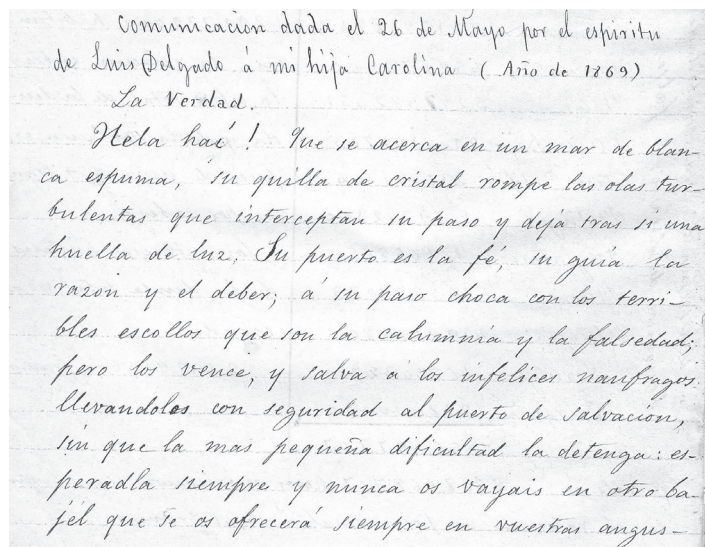 Comunicacion dada el 26 de Mayo por el espiritu
de Luis Delgado á mi hija Carolina ( Año de 1869)
La Verdad.
Hela haí! Que se acerca en un mar de blan-
ca espuma, su quilla de cristal rompe las olas tur-
bulentas que interceptan su paso y deja tras si una
huella de luz; Su puerto es la fé, su guia la
razon y el deber; á su paso choca con los terri-
bles escollos que son la calumnia y la falsedad;
pero los vence, y salva á los infelices naufragos
llevandoles con seguridad al puerto de salvacion,
sin que la mas pequeña dificultad la detenga: es-
peradla siempre y nunca os vayais en otro ba-
jél que se os ofrecerá siempre en vuestras angus-